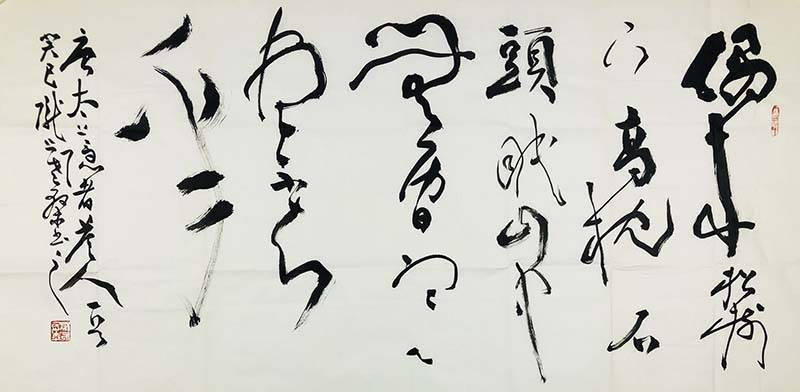 偶來松樹
下高枕石
頭眠山中
無曆日寒
盡不知
年
唐太上隱者答人
癸巳 書